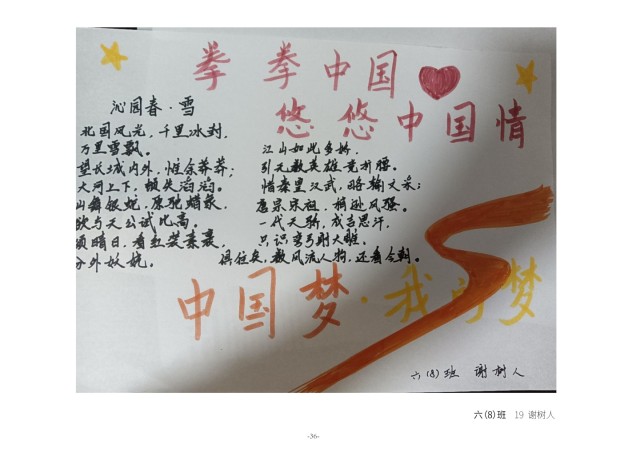 拳拳中国
悠悠中国情
沁园春·雪
北国风光，千里冰封，
万里雪飘。
望长城内外，惟余莽莽；
大河上下，顿失滔滔。
山舞银蛇，原驰蜡象，
欲与天公试比高。
须晴日，看红装素裹，
分外妖娆。
江山如此多娇，
引无数英雄竞折腰。
惜秦皇汉武，略输文采；
唐宗宋祖，稍逊风骚。
一代天骄，成吉思汗，
只识弯弓射大雕。
俱往矣，数风流人物，还看今朝。
中国梦·我的梦
六(8)班 谢树人
六(8)班 19 谢树人
-36-